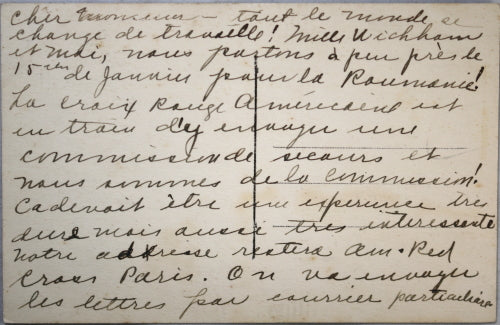 cher Monsieur - tout le monde se
change de travaille! Mills Wickham
et moi, nous partons à peu près le
15 de Janvier pour la Roumanie!
La croix Rouge Américaine est
en train d'y envoyer une
commission de secours et
nous sommes de la Commission!
Ca devoit être une experience tres
dure mais aussi tres interessante
notre addresse restera Am. Red
Cross Paris. On va envoyer
les lettres par courrier particulière